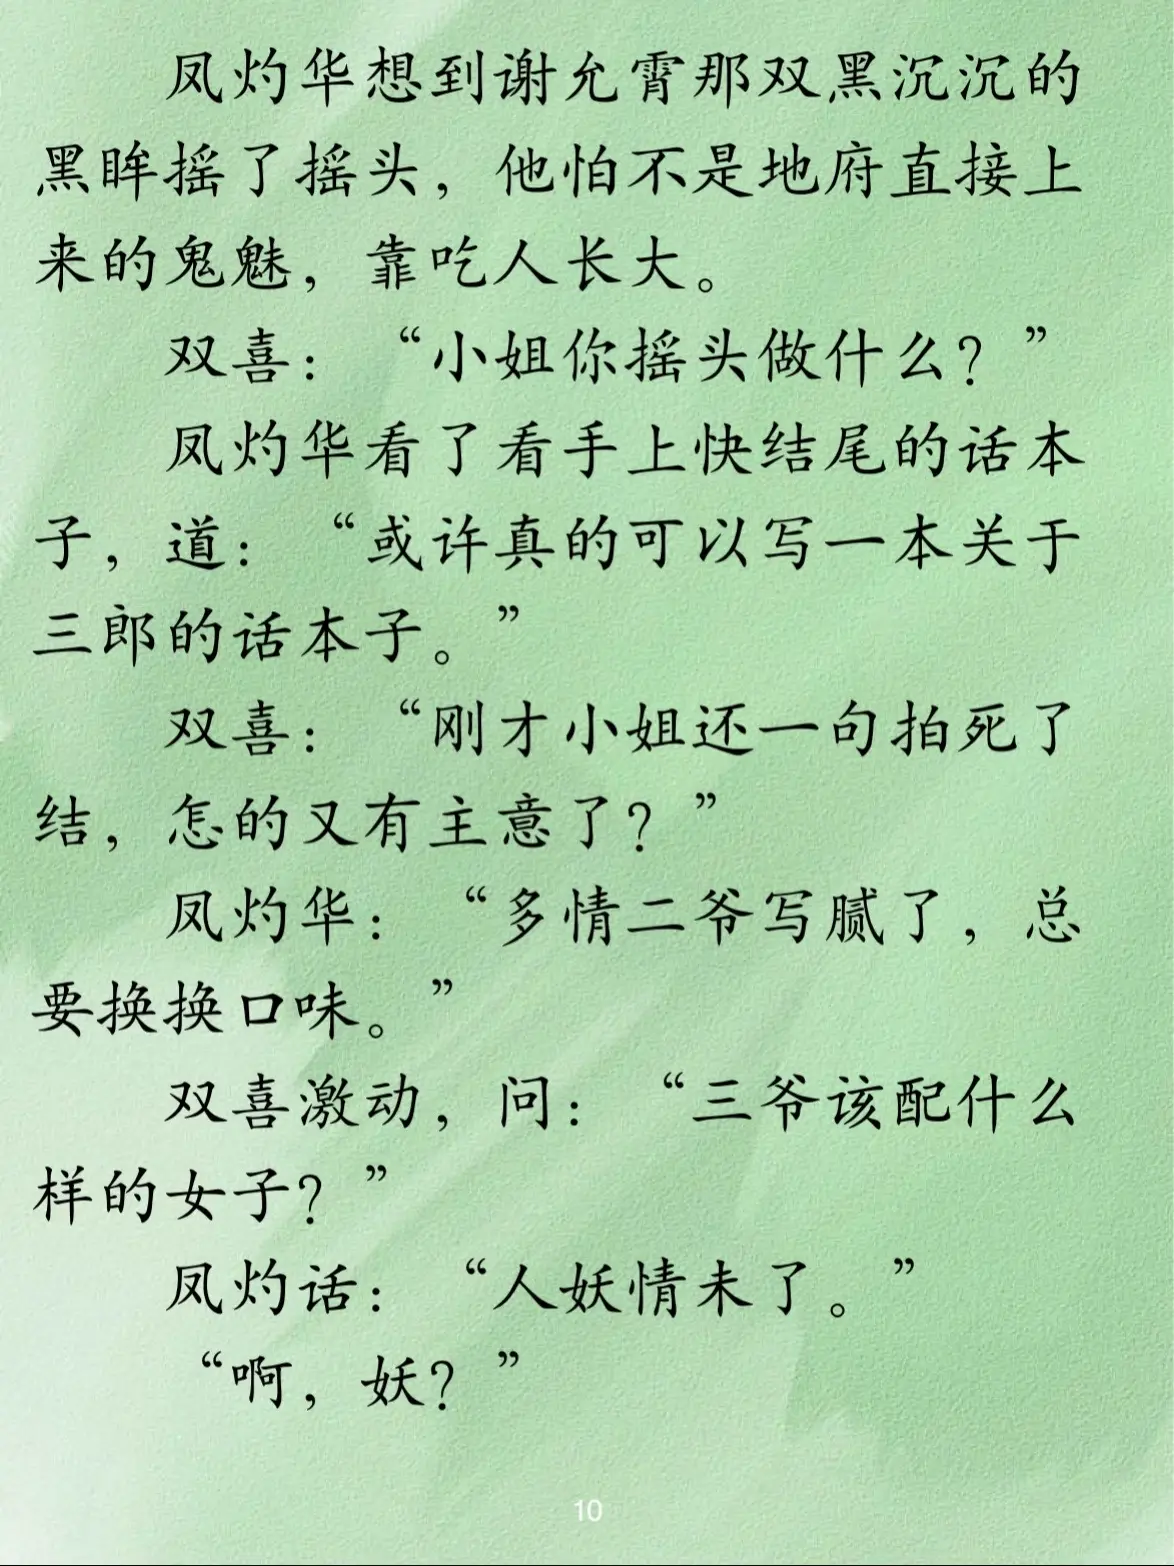 凤灼华想到谢允霄那双黑沉沉的
黑眸摇了摇头，他怕不是地府直接上
来的鬼魅，靠吃人长大。
双喜：“小姐你摇头做什么？”
凤灼华看了看手上快结尾的话本
子，道：“或许真的可以写一本关于
三郎的话本子。”
双喜：“刚才小姐还一句拍死了
结，怎的又有主意了？”
凤灼华：“多情二爷写腻了，总
要换换口味。”
双喜激动，问：“三爷该配什么
样的女子？”
凤灼话：“人妖情未了。”
“啊，妖？”
10